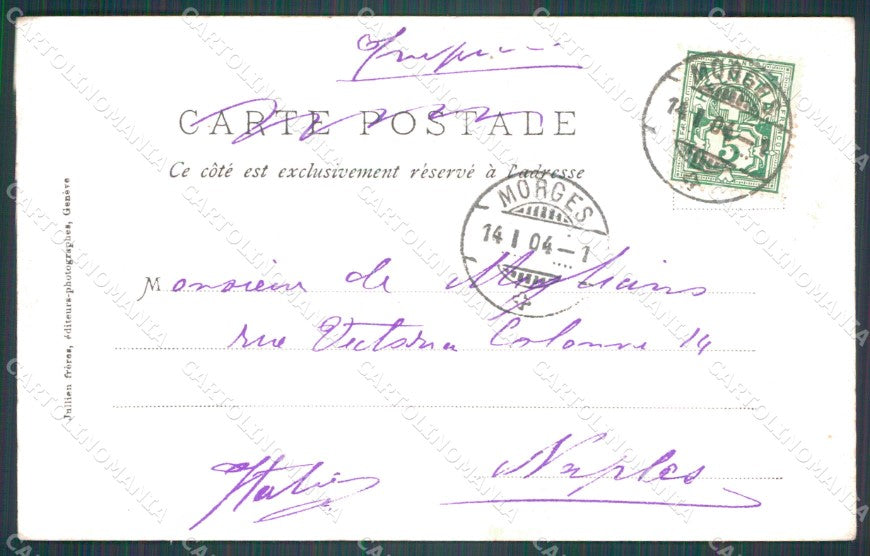 CARTE POSTALE
Ce côté est exclusivement réservé à l'adresse
MORGES
14 I 04-1
5
MORGES
14 I 04-1
Monsieur de
rue Victoria Colonna 14
Naples
Italie
Jullien frères, éditeurs-photographes, Genève
CARTOLINOMANIA